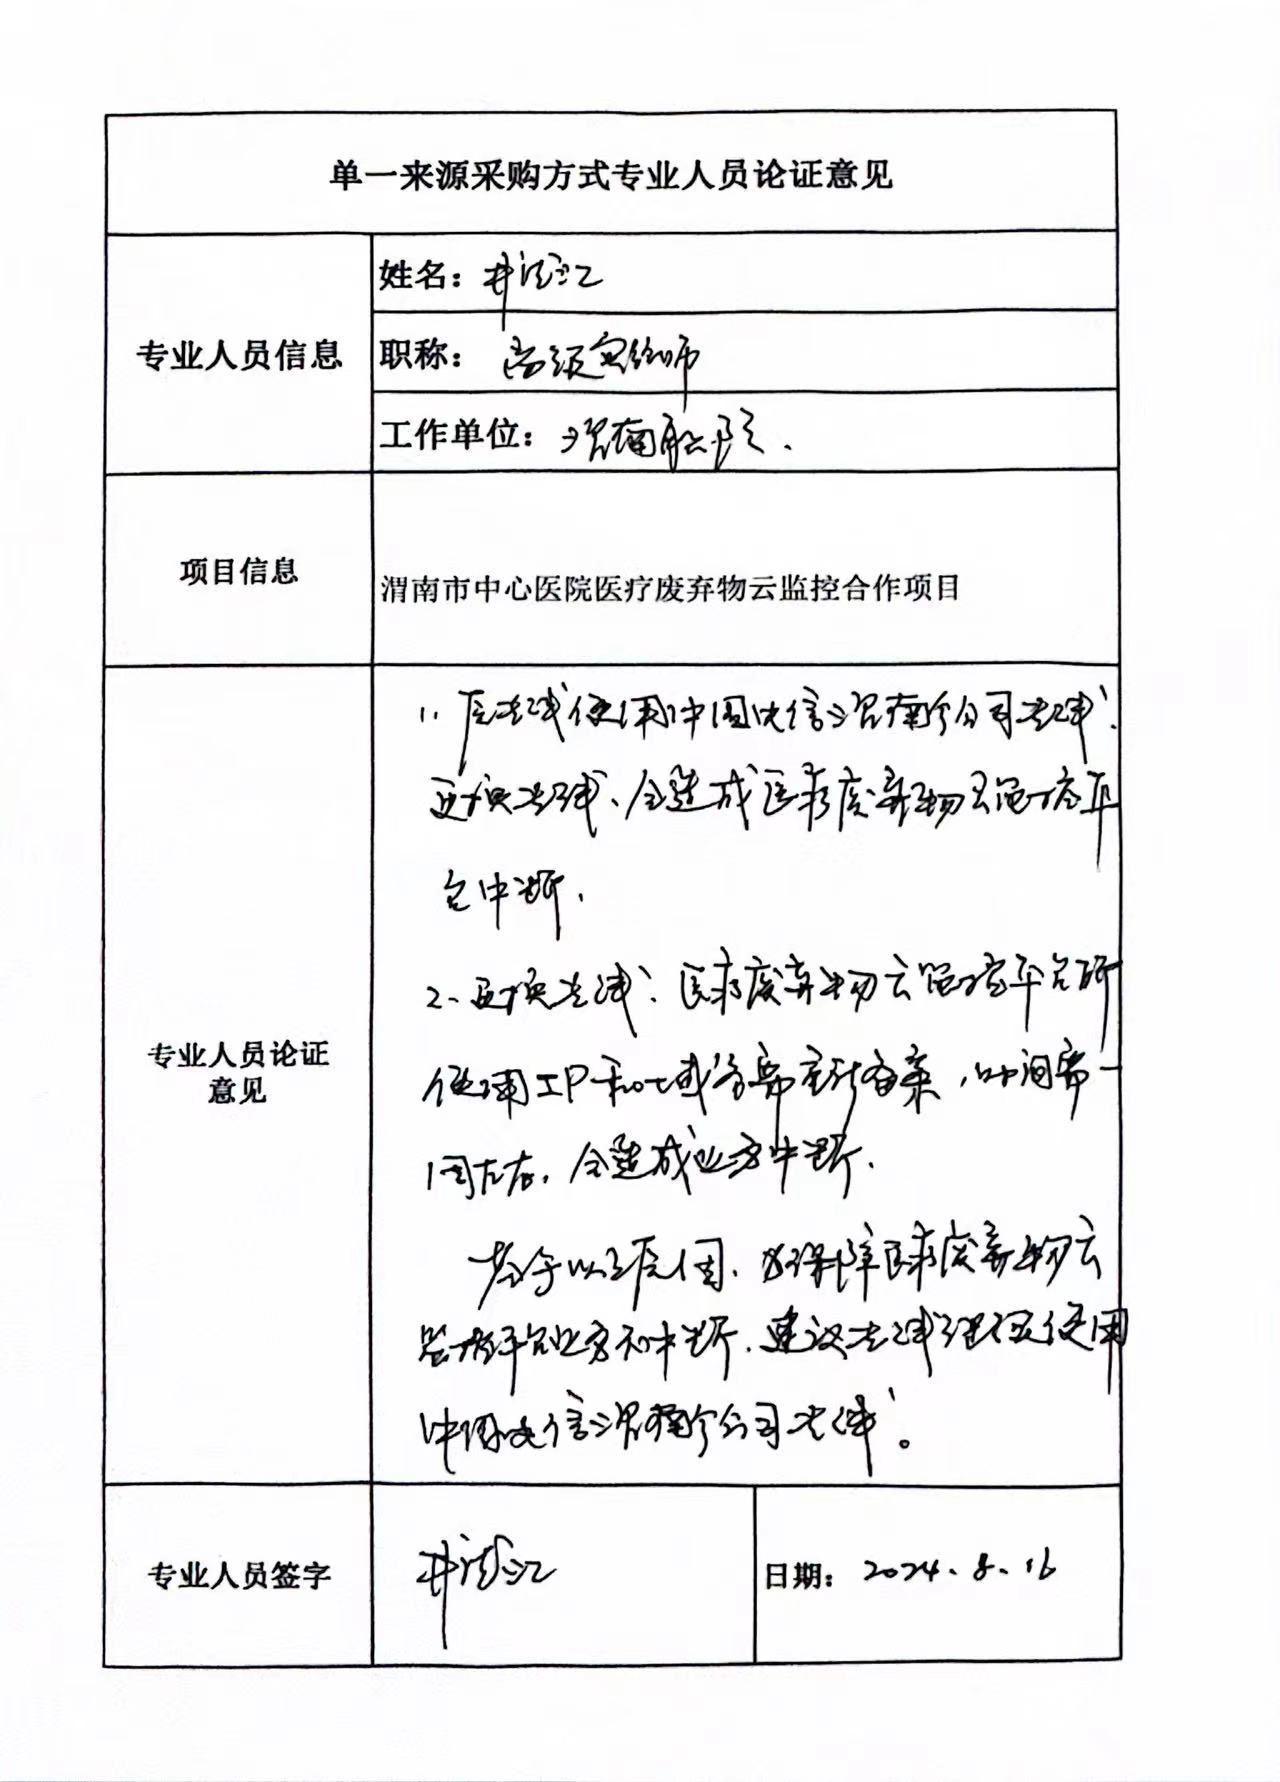 单一来源采购方式专业人员论证意见
专业人员信息
姓名：井
职称：高级实验师
工作单位：渭南职院.
项目信息
渭南市中心医院医疗废弃物云监控合作项目
专业人员论证
意见
1、原专线使用中国电信渭南分公司专线，
更换专线、会造成医疗废弃物云监控平
台中断.
2、更换专线、医疗废弃物云监控平台所
使用IP和域名需重新备案，时间需一
周左右，会造成业务中断.
基于以上原因，为保障医疗废弃物云
监控平台业务不中断，建议专线继续使用
中国电信渭南分公司专线。
专业人员签字
井
日期：2024.8.16